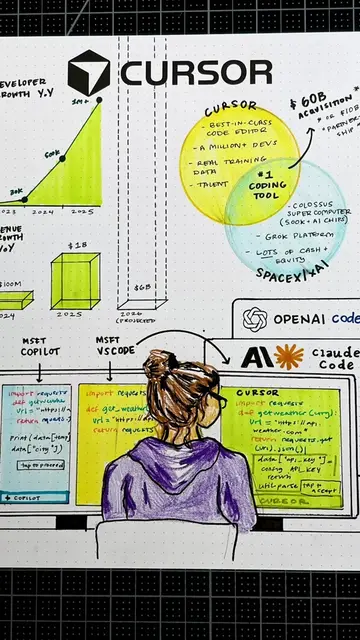 CURSOR
DEVELOPER
GROWTH Y.Y
1M+
600K
30K
2023
2024
2025
CURSOR
- BEST-IN-CLASS
CODE EDITOR
- A MILLION+ DEVS
- REAL TRAINING
DATA
- TALENT
#1
CODING
TOOL
- COLOSSUS
SUPER COMPUTER
(500K+ AI CHIPS)
- GROK PLATFORM
- LOTS OF CASH +
EQUITY
SPACEX/XAI
$ 60B
ACQUISITION *
* OR $10B
"PARTNER-
SHIP"
REVENUE
GROWTH
YoY
$100M
2024
$1B
2025
$6B
2026
(PROJECTED
OPENAI Code
MSFT
COPILOT
MSFT
VSCODE
AI Claude
Code
import requests
def getweather
url = "https://
return requests.
print (data [temp]
data ["city"]
tap to proceed
+ COPILOT
import requests
def get_weather
url = "https://
return requests
CURSOR
import requests
def getweather (city):
url = "https://api.
weather.com"
return requests.get
(url).json()
data ["api_key"]=
config API_KEY
return
util.parse
tap to
accept
CURSOR